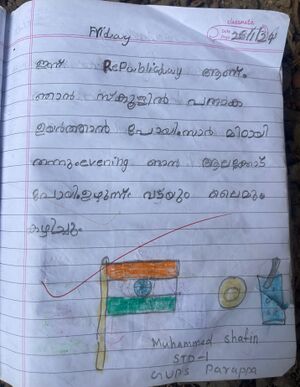 classmate
Date 26/1/24
Page
Friday
ഇന്ന് RePublicday ആണ്.
ഞാൻ സ്കൂളിൽ പതാക
ഉയർത്താൻ പോയി. സാർ മിഠായി
തന്നു. evening ഞാൻ
പോയി. ഉഴുന്ന് വടയും ലൈമും
കുഴിച്ചും
Muhammed shafin
STD-1
GUPS Parappa